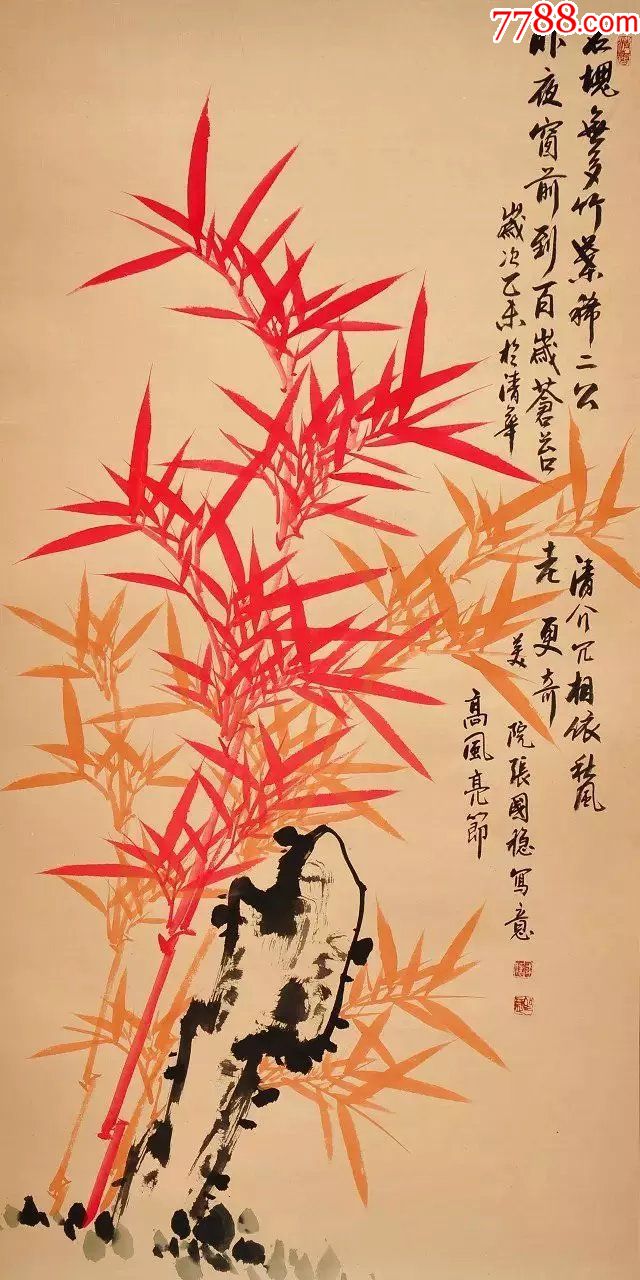 7788.com
石塊無多竹葉稀二公
清介冗相依秋風
昨夜窗前到百歲蒼苔
老更奇
歲次乙未於清華
美
院張國穩寫意
高風亮節